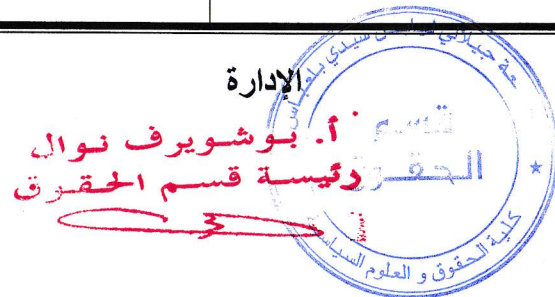 الإدارة
أ. بوشويرف نوال
رئيسة قسم الحقوق
جامعة جيلالي ليابس سيدي بلعباس
قسم
الحقوق
كلية الحقوق و العلوم السياسية